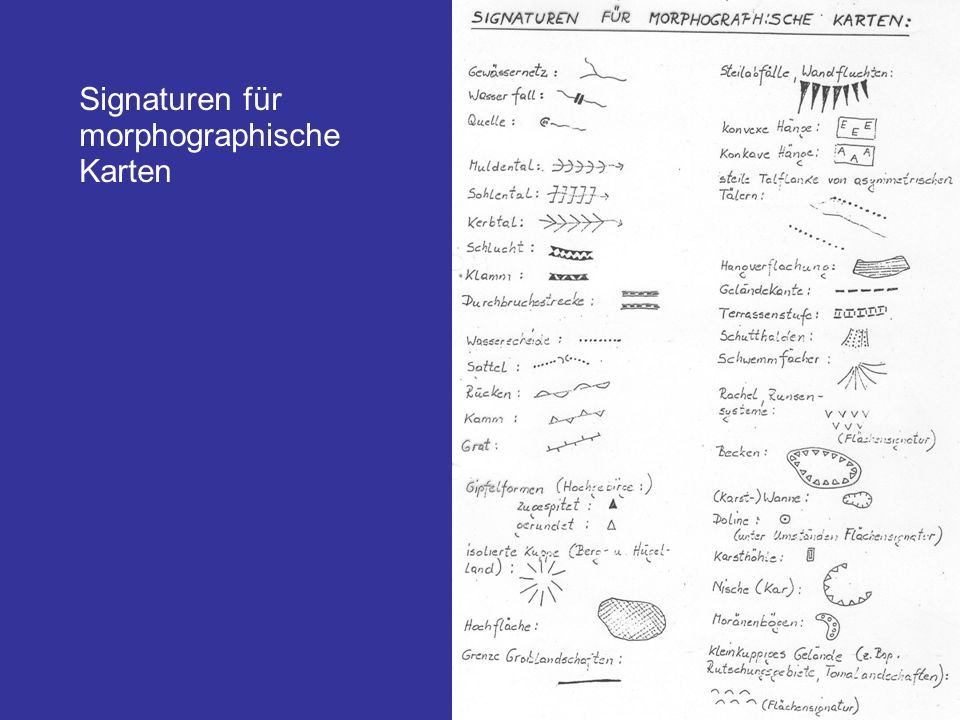 Signaturen für
morphographische
Karten
SIGNATUREN FÜR MORPHOGRAPHISCHE KARTEN:
Gewässernetz:
Wasserfall:
Quelle:
Muldental:
Sohlental:
Kerbtal:
Schlucht:
Klamm:
Durchbruchsstrecke:
Wasserscheide:
Sattel:
Rücken:
Kamm:
Grat:
Gipfelformen (Hochgebirge:)
zugespitzt:
gerundet:
isolierte Kuppe (Berg- u. Hügel-
land):
Hochfläche:
Grenze Großlandschaften:
Steilabfälle, Wandfluchten:
konvexe Hänge: E E E
Konkave Hänge: A A A
steile Talflanke von asymmetrischen
Tälern:
Hangverflachung:
Geländekante:
Terrassenstufe:
Schutthalden:
Schwemmfächer:
Rachel, Runsen-
systeme:
(Flächensignatur)
Becken:
(Karst-)Wanne:
Doline:
(unter Umständen Flächensignatur)
Karsthöhle:
Nische (Kar):
Moränenbögen:
kleinkuppiges Gelände (z. Bsp.
Rutschungsgebiete, Tomalandschaften):
(Flächensignatur)